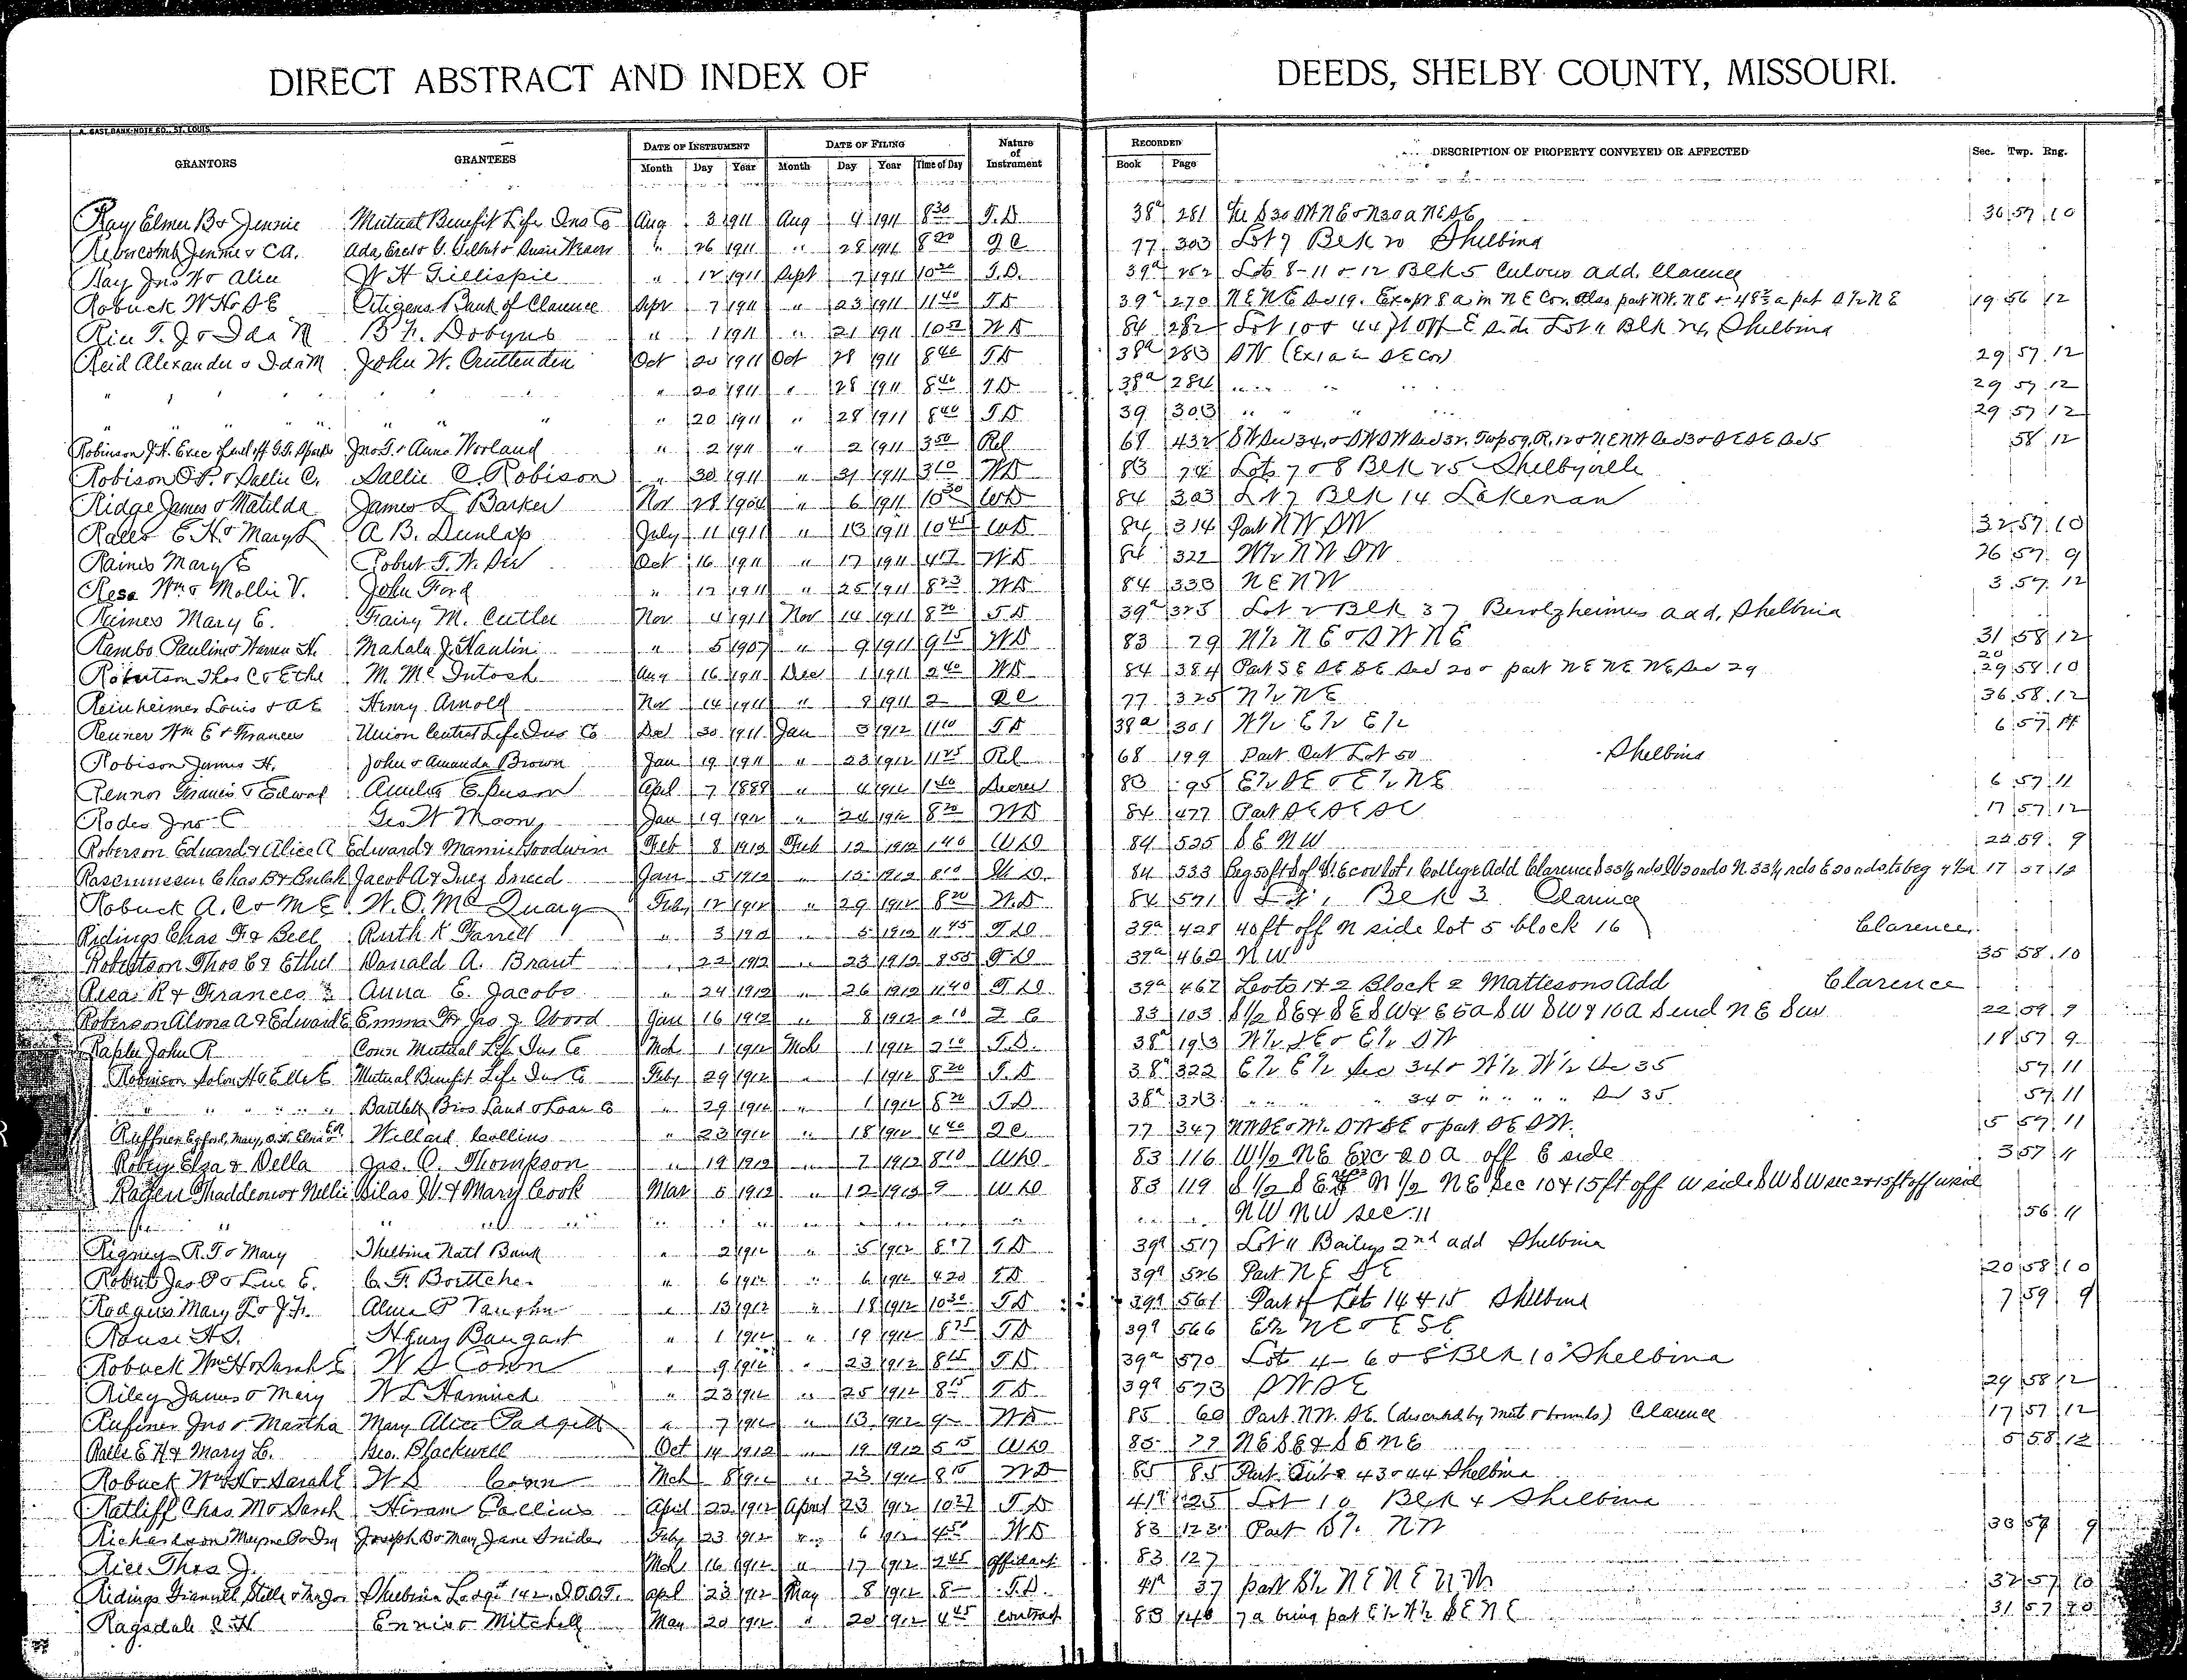 DIRECT ABSTRACT AND INDEX OF DEEDS, SHELBY COUNTY, MISSOURI.
A. GAST BANK NOTE CO., ST. LOUIS
GRANTORS GRANTEES DATE OF INSTRUMENT DATE OF FILING Nature of Instrument RECORDED DESCRIPTION OF PROPERTY CONVEYED OR AFFECTED Sec. Twp. Rng.
Month Day Year Month Day Year Time of Day Book Page
Ray Elmer B & Jennie Mutual Benefit Life Ins Co Aug 3 1911 Aug 4 1911 8 30 T.D. 38a 281 S 30 NE & N 30 a NE SE 36 57 10
Jennie & C.A. " 26 1911 " 28 1911 8 20 Q C 77 303 Lot 7 Blk 20 Shelbina
Ray Jno W & Alice W H Gillispie " 12 1911 Sept 7 1911 10 20 T.D. 39a 252 Lots 8-11 & 12 Blk 5 add. Clarence
Robuck W H & S E Citizens Bank of Clarence Sept 7 1911 " 23 1911 11 40 T.D 39a 270 NE NE Sec 19. Except 8 a in N E Cor. Also part NW. NE & a part S 1/2 N E 19 56 12
Rice T. J & Ida M B F. Dobyns " 1 1911 " 21 1911 10 W D 84 282 Lot 10 & 44 ft off E side Lot 11 Blk 24, Shelbina
Reid Alexander & Ida M John W. Cruttenden Oct 20 1911 Oct 28 1911 8 40 T.D 38a 283 SW (Ex 1 a in S E Cor) 29 57 12
" " " " " 20 1911 " 28 1911 8 40 T.D 38a 284 " " " 29 57 12
" " " " " 20 1911 " 28 1911 8 40 T.D 39 303 " " " 29 57 12
Robinson J. H. Exec Jno T. & Anna Worland " 2 1911 " 2 1911 3 50 Rel 69 432 SW Sec 34, & SW SW Sec 32, Twp 59, R, 12 & NE NW Sec 3 & SE SE Sec 5 58 12
Robison O. P. & Sallie C. Sallie C. Robison " 30 1911 " 31 1911 3 10 WD 83 74 Lots 7 & 8 Blk 25 Shelbyville
Ridge James & Matilda James L Barker Nov 28 1904 " 6 1911 10 30 WD 84 303 Lot 7 Blk 14 Lakenan
Ralls E. H & Mary L A B. Dunlap July 11 1911 " 13 1911 10 45 WD 84 314 Part NW SW 32 57 10
Raines Mary E Robert T. W. Oct 16 1911 " 17 1911 4 WD 84 322 W 1/2 NW SW 26 57 9
Wm & Mollie V. John Ford " 12 1911 " 25 1911 8 23 WD 84 333 NE NW 3 57 12
Raines Mary E. Fairy M. Cutler Nov 4 1911 Nov 14 1911 8 20 T.D 39a 325 Lot 2 Blk 37 Berolzheimer add, Shelbina
Rambo Paulin & Warren H. Mahala J. Hanlin " 5 1907 " 9 1911 9 15 WD 83 79 N 1/2 NE & SW NE 31 58 12
Robertson Thos C & Ethel M. Mc Intosh Aug 16 1911 Dec 1 1911 2 40 WD 84 384 Part SE SE SE Sec 20 & part NE NE NE Sec 29 20 29 58 10
Reinheimer Louis & A E Henry Arnold Nov 14 1911 " 9 1911 2 Q C 77 325 N 1/2 NE 36 58 12
Renner Wm E & Frances Union Central Life Ins Co Dec 30 1911 Jan 3 1912 11 10 T.D 38a 301 W 1/2 E 1/2 E 1/2 6 57 11
Robison James H. John & Amanda Brown Jan 19 1911 " 23 1912 11 25 Rel 68 199 Part Out Lot 50 Shelbina
Rennor Francis & Edward Amelia Epuson April 7 1888 " 4 1912 1 50 Decree 83 95 E 1/2 SE & E 1/2 NE 6 57 11
Rodes Jno C Geo W Moon Jan 19 1912 " 24 1912 8 20 WD 84 477 Part SE SE SE 17 57 12
Roberson Edward & Alice A Edward & Mamie Goodwin Feb 8 1912 Feb 12 1912 1 40 W D 84 525 S E N W 22 59 9
Rasmussen Chas B & Jacob A & Inez Sneed Jan 5 1912 " 15 1912 8 10 W D 84 533 Beg 50 ft S of S E cor lot 1 College Add Clarence S 33 1/3 rds W 20 rds N 33 1/3 rds E 20 rds to beg 17 57 12
Robuck A. C & M E. W. O. Mc Quary Feby 12 1912 " 29 1912 8 20 W.D 84 571 Lot 1 Blk 3 Clarence
Ridings Chas F & Bell Ruth K Farrell " 3 1912 " 5 1912 11 45 T D 39a 428 40 ft off N side lot 5 block 16 Clarence
Robertson Thos C & Ethel Donald A. Brant " 22 1912 " 23 1912 8 55 T D 39a 462 N W 35 58 10
Rea R & Frances Anna E. Jacobs " 24 1912 " 26 1912 11 40 T D 39a 467 Lots 1 & 2 Block 2 Mattesons Add Clarence
Roberson Alma A & Edward E Emma F & Jas J Wood Jan 16 1912 " 8 1912 2 10 Q C 83 103 S 1/2 S E & S E S W & E 50 a S W S W & 10 A S end N E S W 22 59 9
Rapley John R Conn Mutual Life Ins Co Mch 1 1912 Mch 1 1912 2 10 T.D. 38a 193 W 1/2 SE & E 1/2 SW 18 57 9
Robinson Solon H & Ella E Mutual Benefit Life Ins Co Feby 29 1912 " 1 1912 8 20 T.D 38a 322 E 1/2 E 1/2 Sec 34 & W 1/2 W 1/2 Sec 35 57 11
" " " " " Bartlett Bros Land & Loan Co " 29 1912 " 1 1912 8 20 T.D 38a 323 " " " " 34 & " " " " Sec 35 57 11
Ruffner Willard Collins " 23 1912 " 18 1912 4 40 Q C 77 347 NW SE & W 1/2 SW SE & part SE SW. 5 57 11
Robey Elza & Della Jas. O. Thompson " 19 1912 " 7 1912 8 10 W D 83 116 W 1/2 NE Exc 20 a off E side 3 57 11
Ragen Thaddeous & Nellie Silas W. & Mary Cook Mar 5 1912 " 12 1912 9 W D 83 119 S 1/2 S E & N 1/2 NE Sec 10 & 15 ft off W side SW SW sec 2 & 15 ft off w side
" " " " " " " " " " " " " NW NW sec. 11 56 11
Rigney R. T & Mary Shelbina Natl Bank " 2 1912 " 5 1912 8 T.D 39a 517 Lot 11 Baileys 2nd add Shelbina
Jas P & Lue E. C. F. Boettcher " 6 1912 " 6 1912 4 20 T.D 39a 526 Part NE SE 20 58 10
Rodgers Mary L & J. F. Alma P Vaughn " 13 1912 " 18 1912 10 30 T.D 39a 561 Part of Lots 14 & 15 Shelbina 7 59 9
Rouse H S. Henry Baugart " 1 1912 " 19 1912 8 25 T.D 39a 566 E 1/2 NE & E SE
Robuck Wm H & Sarah E W S Conn " 9 1912 " 23 1912 8 15 T.D 39a 570 Lots 4-6 & 8 Blk 10 Shelbina
Riley James & Mary W L Hamrick " 23 1912 " 25 1912 8 15 T.D 39a 573 SW SE 29 58 12
Rufiner Jno & Martha Mary Alice Padgett " 7 1912 " 13 1912 9 WD 85 60 Part NW. SE. (described by mets & bounds) Clarence 17 57 12
Ralls E H & Mary L. Geo. Blackwell Oct 14 1912 " 19 1912 5 15 W D 85 79 NE SE & S E NE 5 58 12
Robuck Wm H & Sarah E W S Conn Mch 8 1912 " 23 1912 8 15 WD 85 85 Part Out 43 & 44 Shelbina
Ratliff Chas M & Sarah Hiram Collins April 22 1912 April 23 1912 10 27 T.D 41a 25 Lot 10 Blk 4 Shelbina
Richardson Joseph B & Mary Jane Snider Feby 23 1912 " 6 1912 4 50 WD 83 123 Part S 1/2 NW 30 57 9
Rice Thos J. Mch 16 1912 " 17 1912 2 45 Affidavit 83 127
Ridings Shelbina Lodge 142 I.O.O.F. April 23 1912 May 8 1912 8 T.D. 41a 37 part S 1/2 NE NE NW 32 57 10
Ragsdale C. H Ennis & Mitchell May 20 1912 " 20 1912 4 45 Contract 83 146 7 a being part E 1/2 W 1/2 SE NE 31 57 10